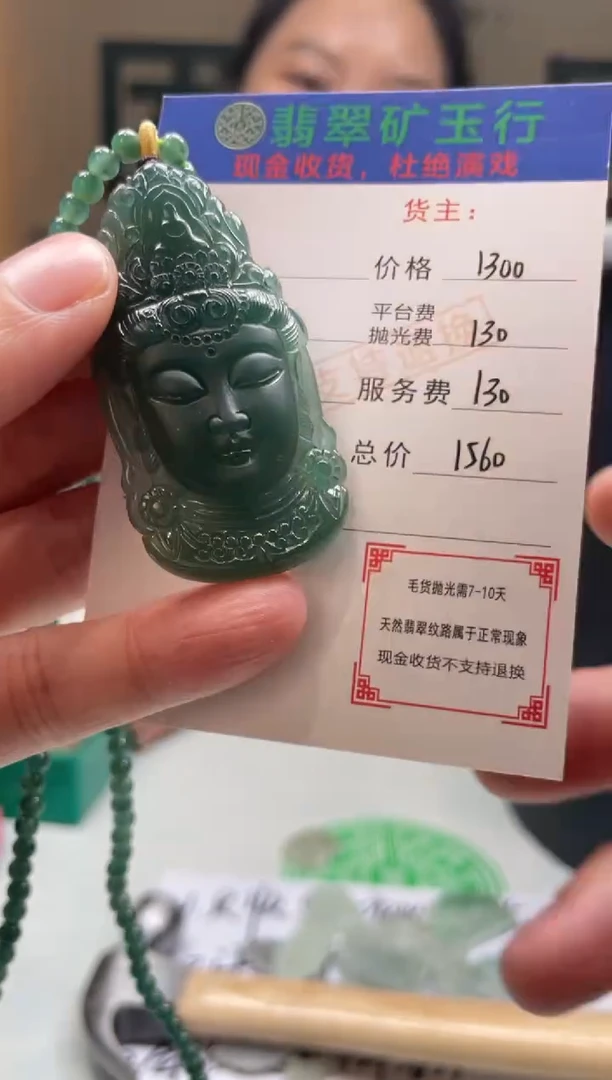 翡翠矿玉行
现金收货，杜绝演戏
货主：
价格 1300
平台费
抛光费 130
服务费 130
总价 1560
毛货抛光需7-10天
天然翡翠纹路属于正常现象
现金收货不支持退换